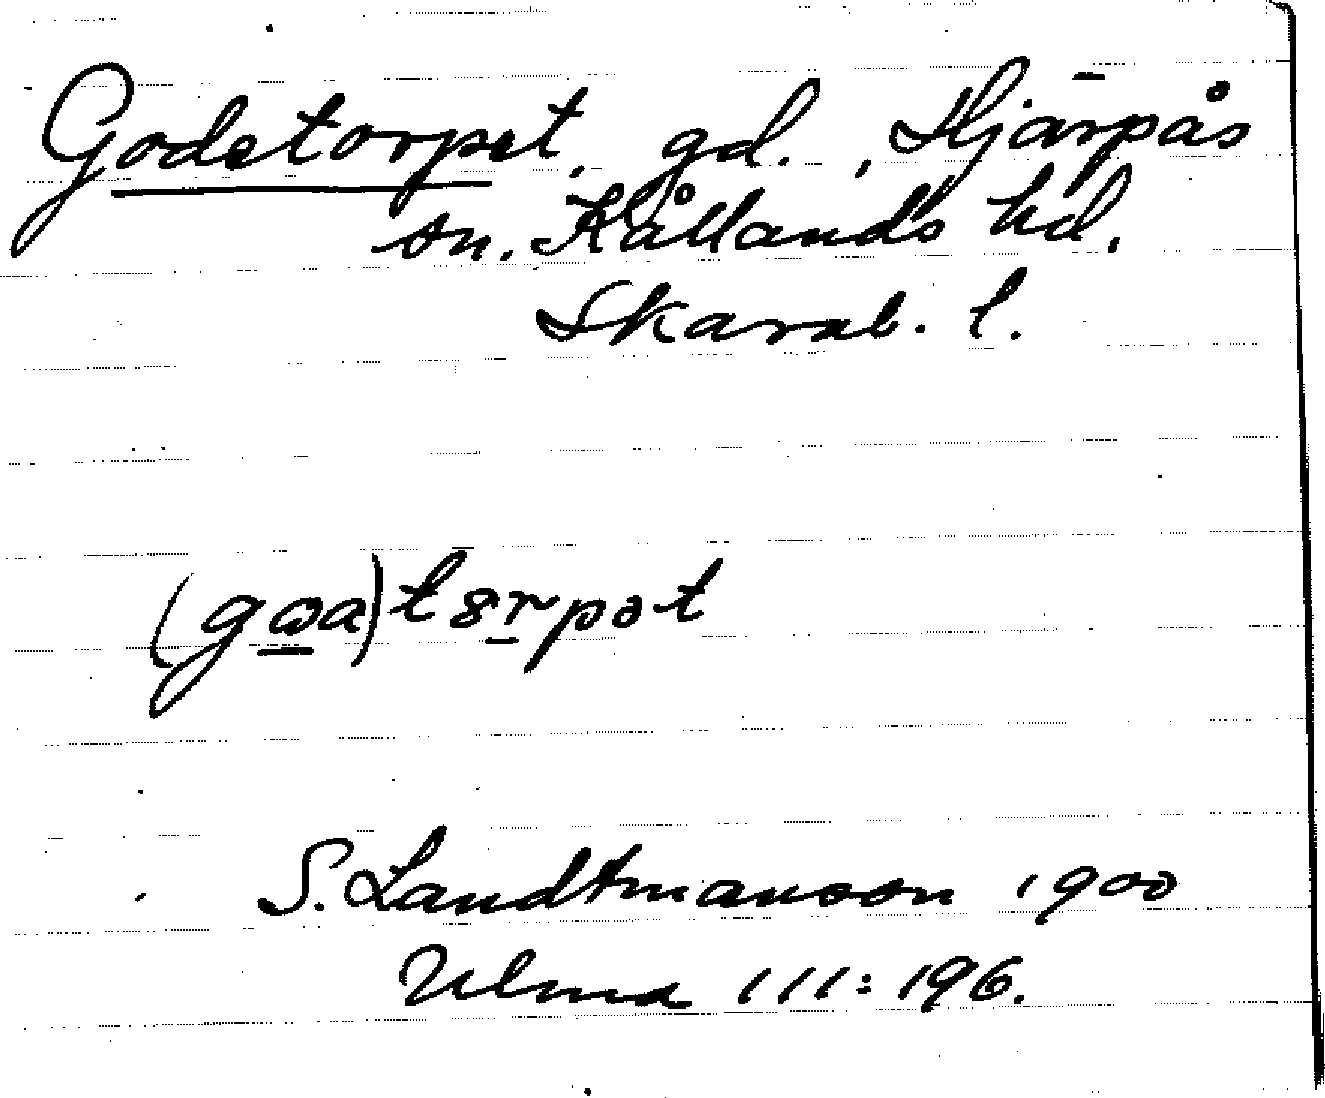 Godetorpet, gd., Hjärpås
sn. Kållands hd.
Skarab. l.
(gωa)t8rpət
S. Landtmanson 1900
Ulma 111:196.